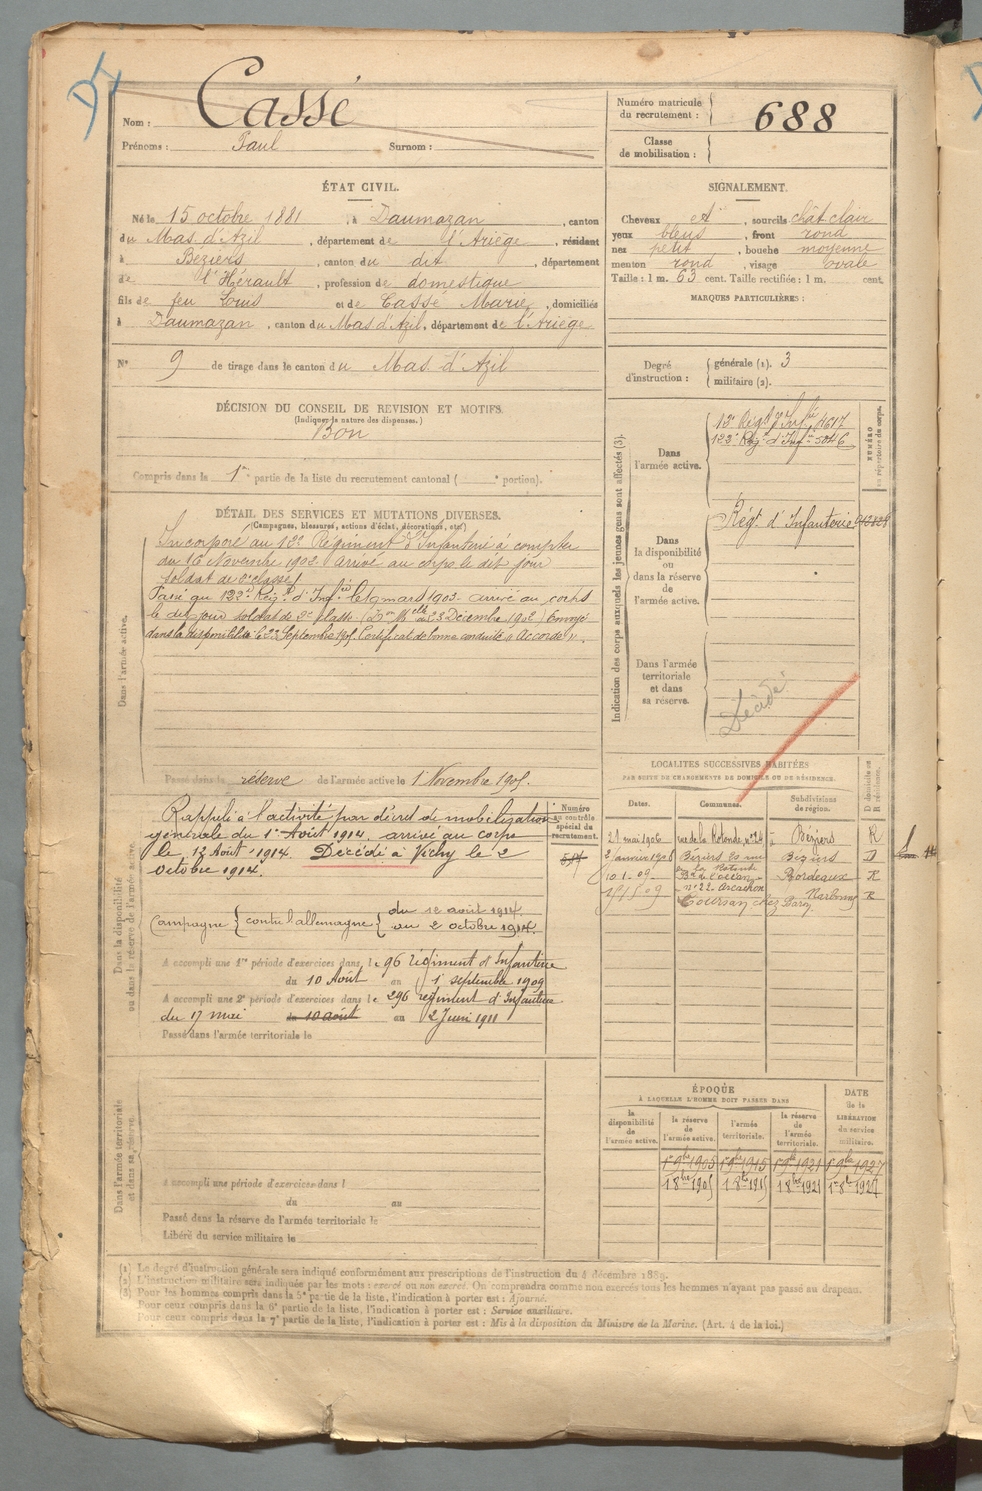 Nom : Cassé
Prénoms : Paul Surnom :
Numéro matricule du recrutement : 688
Classe de mobilisation :
ÉTAT CIVIL.
Né le 15 octobre 1881, à Daumazan, canton
du Mas d'Azil, département de l'Ariège, résidant
à Béziers, canton du dit, département
de l'Hérault, profession de domestique
fils de feu Louis et de Cassé Marie, domiciliés
à Daumazan, canton du Mas d'Azil, département de l'Ariège
N° 9 de tirage dans le canton du Mas d'Azil
SIGNALEMENT.
Cheveux , sourcils chât clair
yeux bleus, front rond
nez petit, bouche moyenne
menton rond, visage ovale
Taille : 1 m. 63 cent. Taille rectifiée : 1 m. cent.
MARQUES PARTICULIÈRES :
Degré d'instruction : générale (1). 3
militaire (2).
DÉCISION DU CONSEIL DE REVISION ET MOTIFS.
(Indiquer la nature des dispenses.)
Bon
Compris dans la 1re partie de la liste du recrutement cantonal ( e portion).
DÉTAIL DES SERVICES ET MUTATIONS DIVERSES.
(Campagnes, blessures, actions d'éclat, décorations, etc.)
Dans l'armée active.
Incorporé au Régiment d'Infanterie à compter
du 16 Novembre 1902 arrivé au corps le dit jour
soldat de 2e classe
Passé au 122e Rég. d'Inf.ie le 19 mars 1903. arrivé au corps
le dit jour soldat de 2e classe (Don Mlle du 23 Décembre 1902) Envoyé
dans la disponibilité le 23 Septembre 1905. Certificat de bonne conduite « Accordé ».
Passé dans la réserve de l'armée active le 1 Novembre 1905.
Indication des corps auxquels les jeunes gens sont affectés (3).
NUMÉRO au répertoire du corps.
Dans l'armée active.
Rég. d'Inf.ie 4617
122e Rég. d'Inf.ie 5046
Dans la disponibilité ou dans la réserve de l'armée active.
Régt. d'Infanterie
Dans l'armée territoriale et dans sa réserve.
Décédé
Dans la disponibilité ou dans la réserve de l'armée active.
Rappelé à l'activité par décret de mobilisation
générale du 1er Août 1914. arrivé au corps
le 12 Août 1914. Décédé à Vichy le 2
octobre 1914.
Campagne { contre l'allemagne { du 12 août 1914.
au 2 octobre 1914.
A accompli une 1re période d'exercices dans le 96 régiment d'Infanterie
du 10 Août au 1 septembre 1909
A accompli une 2e période d'exercices dans le 296 régiment d'Infanterie
du 17 mai du 10 août au 2 Juin 1911
Passé dans l'armée territoriale le
Numéro au contrôle spécial du recrutement.
LOCALITÉS SUCCESSIVES HABITÉES
PAR SUITE DE CHANGEMENTS DE DOMICILE OU DE RÉSIDENCE.
Dates. Communes. Subdivisions de région. D domicile ou R résidence.
21 mai 1906 rue de la Rotonde, n° 24 à Béziers R
2 janvier 1908 Béziers 20 rue de la Rotonde Béziers D
10 1 . 09 Bd de l'océan n° 22 Arcachon Bordeaux R
09 Coursan chez Narbonne R
ÉPOQUE
À LAQUELLE L'HOMME DOIT PASSER DANS
DATE de la LIBÉRATION du service militaire.
la disponibilité de l'armée active. la réserve de l'armée active. l'armée territoriale. la réserve de l'armée territoriale.
1er 9bre 1905 1er 9bre 1915 1er 9bre 1921 1er 9bre 1927
1 8bre 1905 1 8bre 1915 1 8bre 1921 1er 8bre 1927
Dans l'armée territoriale et dans sa réserve.
A accompli une période d'exercices dans l
du au
Passé dans la réserve de l'armée territoriale le
Libéré du service militaire le
(1) Le degré d'instruction générale sera indiqué conformément aux prescriptions de l'instruction du 4 décembre 1889.
(2) L'instruction militaire sera indiquée par les mots : exercé ou non exercé. On comprendra comme non exercés tous les hommes n'ayant pas passé au drapeau.
(3) Pour les hommes compris dans la 5e partie de la liste, l'indication à porter est : Ajourné.
Pour ceux compris dans la 6e partie de la liste, l'indication à porter est : Service auxiliaire.
Pour ceux compris dans la 7e partie de la liste, l'indication à porter est : Mis à la disposition du Ministre de la Marine. (Art. 4 de la loi.)